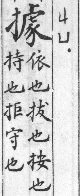 ㄐㄩ
據
依也拔也按也
持也拒守也